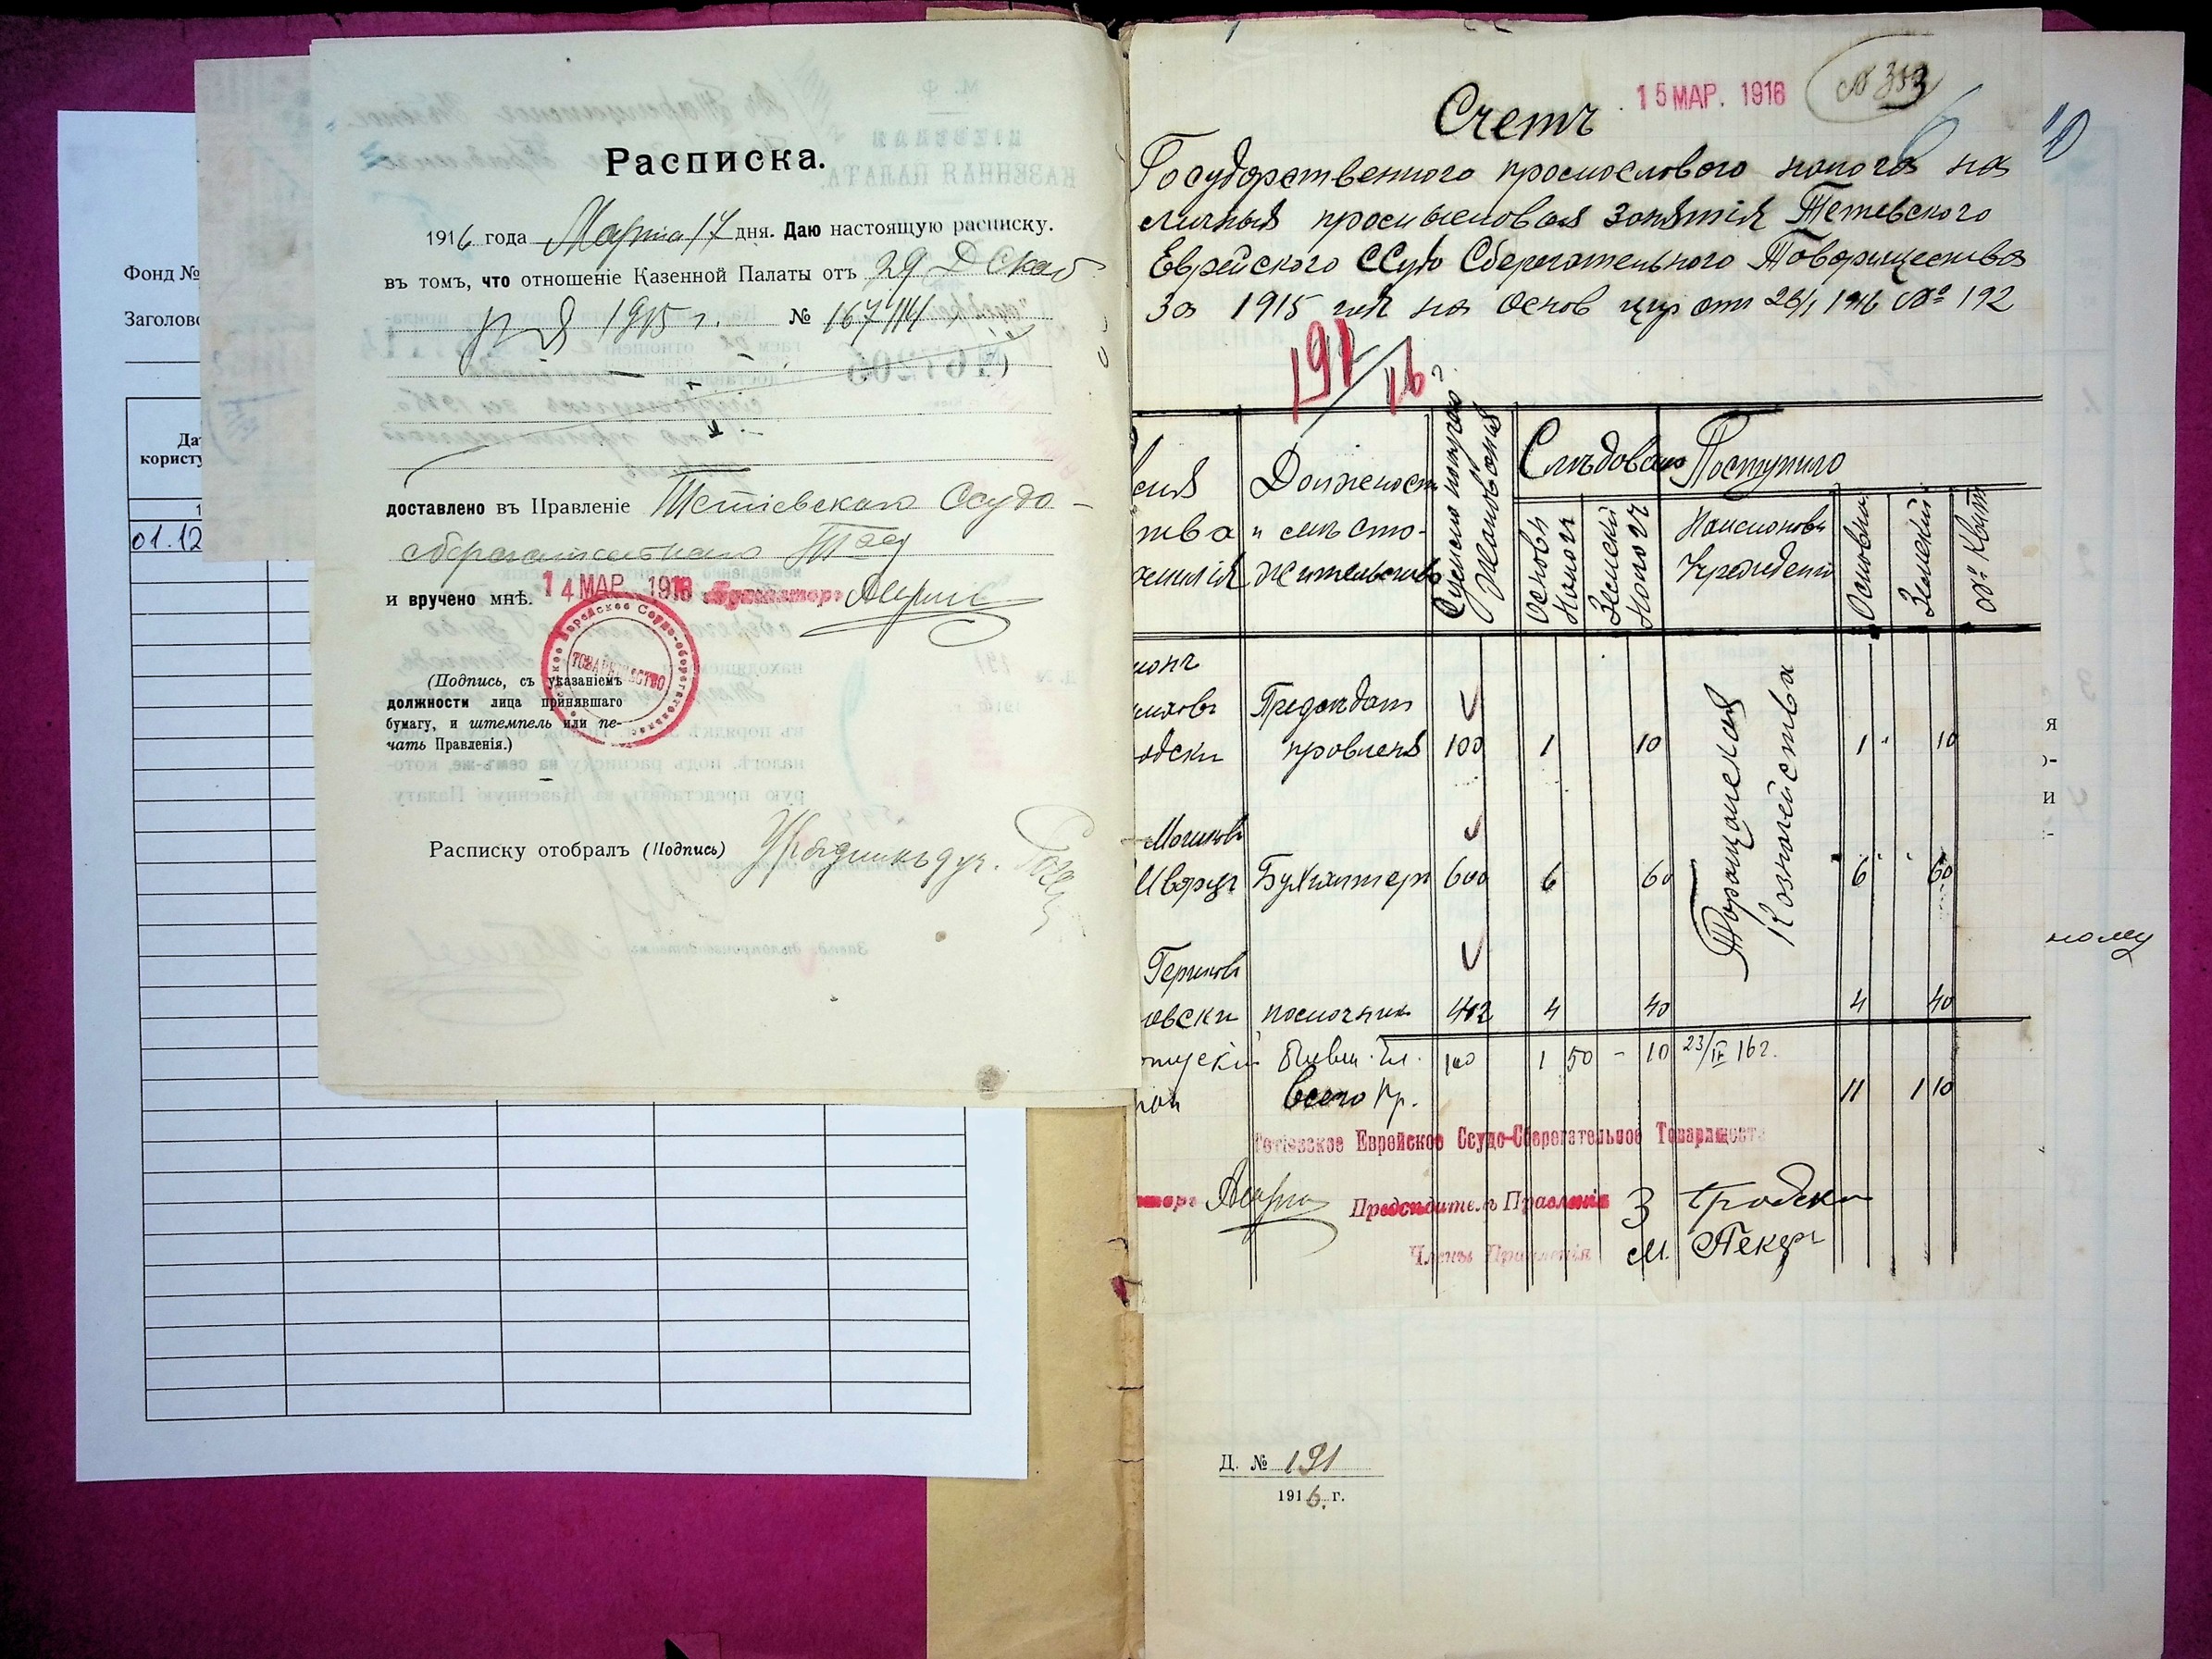 Фонд №
Заголово
Да
користу
1
01.12
Расписка.
1916 года Марта 17 дня. Даю настоящую расписку.
въ томъ, что отношеніе Казенной Палаты отъ 29 Декаб
ря 1915 г. № 167114
доставлено въ Правленіе Тетіевскаго Ссудо-
сберегательнаго Т-ва
и вручено мнѣ. 14 МАР. 1916
ТОВАРИЩЕСТВО
(Подпись, съ указаніемъ
должности лица принявшаго
бумагу, и штемпель или пе-
чать Правленія.)
Расписку отобралъ (Подпись)
Счетъ 15 МАР. 1916 № 353
6
Государственного промыслового налога на
личныя промысловыя занятія Тетевского
Еврейского Ссудо Сберегательного Товарищества
за 1915 годъ на основ цир от 26/1 1916 № 192
191/16
Должност
и мѣсто-
жительство
Слѣдовало Поступило
Основн Налогъ
Земскій Налогъ
Наименов
Учрежденія
Основн
Земскій
№ Квит
Предсѣдат
правленя 100 1 10 1 10
Таращанская
Казначейства
Бухгалтеръ 600 6 60 6 60
овски помочник 402 4 40 4 40
100 1 50 - 10 23/IV 16 г.
Всего Кр. 11 1 10
Тетіевское Еврейское Ссудо-Сберегательное Товарищест
Предсѣдатель Правленія З Гродски
Члены Правленія М Пекер
Д. № 191
1916. г.
я
и
ному